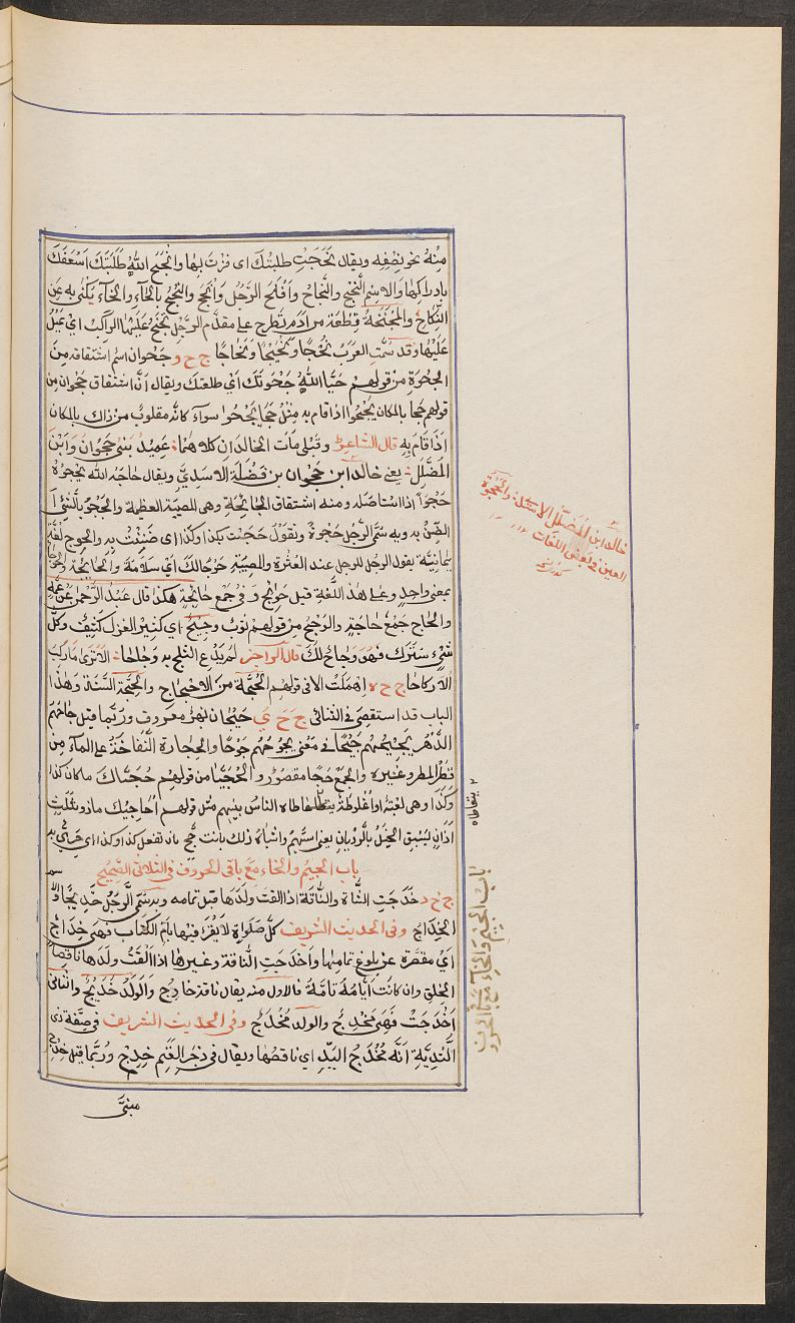 منه نحو نصفه ويقال نَجَحَت طلبتُك اى فزتَ بها وانجح اللهُ طَلِبَتَك اَسْعَفَك
بادراكها والاسم النُجح والنَّجاح وَاَفْلحَ الرَّجُل وَاَنجح والنجخ بالخاءِ والخآء يكنى به عَن
النكاح والمِجْنَحَة قِطعة من اَدَم تطرح على مقدَّم الرَّحْل يَجْتَنح عَلَيْهَا الراكبُ اىْ يَميلُ
عَلَيْها وَقد سَمَّتِ العرَبُ نُجْحًا وَنُجَيْحًا وَنَجَاحًا ج ح و جَحْوان اسْم اشتقاقه مِنَ
الجَحْوَةِ من قولهم حَيَّا اللهُ جَحْوَتَك اَىْ طلعتك ويقال اَنَّ اشتقاق جَحْوان مِن
قولهم جحا بالمكان يَجْحُوا اذا قام به مثلُ حَجَا يَحْجُوا سوآء كانّه مقلوبٌ من ذاك بالمكان
اِذَا قَامَ بِهِ قال الشاعرُ وقَبْلى مَات الخالدَان كلاهُما عَمِيدُ بَنِى جَحْوَانَ وَابْنُ
المُضَلَّل يعنى خالد ابن جَحْوان بن نَضْلَة الاَسَدِيَّ ويقال جاحَهُ الله يَجُوحُهُ
جَوْحًا اذا استاصَله ومنه اشتقاق الجَائِحَةِ وهى المصيبَة العظيمَة والحَجْوُ بالشيْءِ
الضَّنُّ به وبه سَمَّى الرَّجل حَجْوةً وتقولُ حَجِيْتُ بكذا وكذا اى ضَنِنْتُ بِه والحوج لُغَةٌ
يَمانِيَّة يقول الرجل للرجل عند العَثْرة والمصيبَةِ حَوْجًا لَكَ اَىْ سَلامَةً وَالحَائِجَة والحَاجة
بمعنى واحِدٍ وعلى هذه اللُّغَةِ قيل حَوائج وَفى جَمع حائِجَة هكذا قال عَبدُ الرَّحْمٰن عَنْ عَمِّه
والحاج جَمْعُ حَاجَةٍ والوَجْحُ من قولهم ثوبٌ وَجِيحٌ اى كثِيرُ الغزل كثيفٌ وَكلُّ
شَىْءٍ سَتَرَك فهو وِجَاحٌ لك قال الراجز لم يَدَعِ الثلج به وِجَاحا الاترى مَا رَكِبَ
الا ركاحا ج ح ه اهْمِلَتْ الا فى قولهم الحُجَّة من الاحتجاج والحِجَّة السَّنَة وَهٰذا
الباب قد استقصِىَ فى الثنائى ج ح ي جَيْحان نهرٌ معروف ورُبَّما قيل جاحَهُمُ
الدَّهْر يَجِيْحُهُم جَيْحًا فى مَعْنى يجُوحُهُم جَوْحًا والحجاة النُّفَّاخَة على المآءِ مِن
قَطْرِ المطر وغيره والجَمْعُ حَجًا مقصُورٌ والحُجَيَّا من قولهم حُجَيَّاكَ ما كان كذا
وكذا وهى لعْبَة اوْ اُغْلُوطَة يَتَعَاطاه الناسُ بينهم مثل قولهم اُحَاجِيْكَ ماذو ثَلاثِ
اذَانٍ يَسْبِقُ الخَيْلَ بالرَّدَيَانِ يعنى السَّهْمَ واشباهُ ذلك يا انت حَجٍ بان تفعل كذا وكذا اى حَرِىٌّ به
باب الجيم والخاء مَعَ باقى الحروف فى الثلاثى الصحيح
ج خ د خَدَجَتِ الشَّاة والنَّاقَة اذا القت ولَدَهَا قبل تمامه وبه سَمَّى الرَّجُل خَدِيجًا و
الخِدَاج وفى الحديث الشريف كلُّ صَلٰوةٍ لا يُقْرَءُ فِيهَا بِاُمِّ الكِتَاب فَهِىَ خِدَاجٌ
اَىْ مقصّرة عن بلوغ تمامِها وَاَخْدَجَتِ النَّاقة وغيرها اذا اَلْقَتْ ولَدَها نَاقِصَ
الخلق وان كانت اَيّامُهُ تَامَّةً فالاول منه يقال ناقة خادِجٌ وَالوَلَدُ خَدِيجٌ والثانى
اَخْدَجَتْ فَهِىَ مُخْدِجٌ والولد مُخْدَجٌ وفى الحديث الشريف فى صِفَة ذى
الثُّدَيَّة انَّه مُخْدَجُ اليَدِ اى ناقصُها ويقال فى زَجْرِ الغَنَم خِدِجْ ورُبَّما قيل خِدِجْ
مبنىّ
خالد ابن المُضلَّل الاسدى والحجوة
العين فى بعض اللغات
يتعاطاه
باب الجيم والخاء مع باقى الحروف